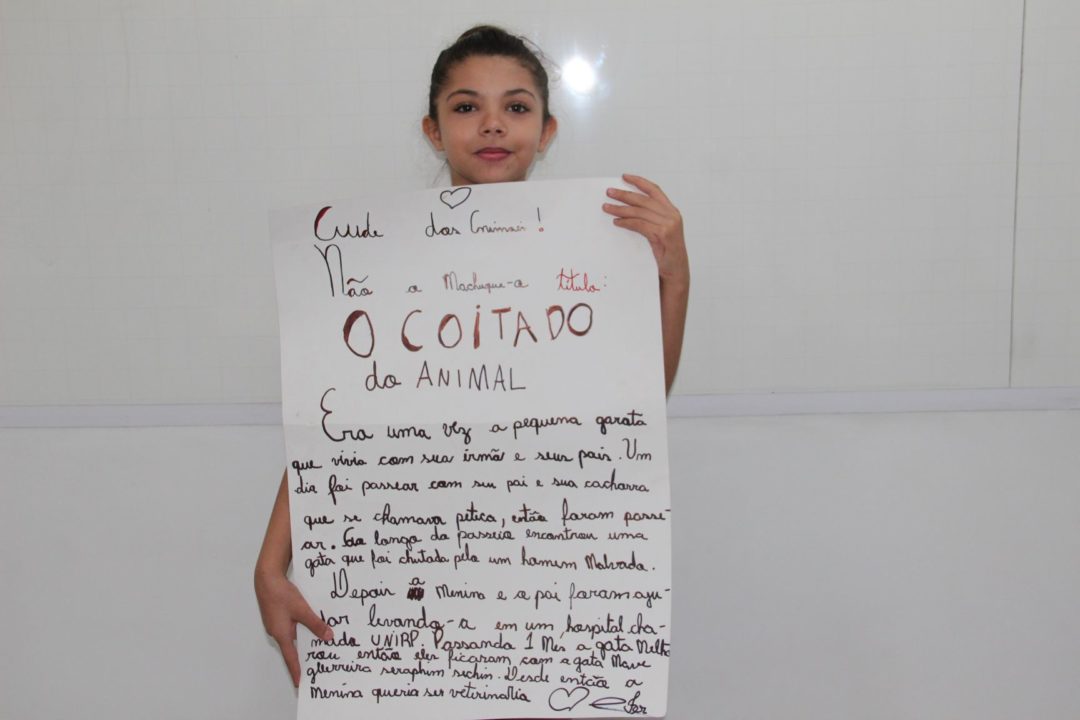 Cuide dos Animai!
Não a Machuque-a título:
O COITADO
do ANIMAL
Era uma vez a pequena garota
que vivia com sua irmã e seus pais. Um
dia foi passear com seu pai e sua cachorra
que se chamava petica, então foram passe-
ar. Ao longo do passeio encontrou uma
gata que foi chutada pelo um homem Malvado.
Depois a Menina e o pai foram aju-
dar levando-a em um hospital cha-
mado UNIRP. Passando 1 Mês a gata Melho
rou então eles ficaram com a gata Mave
guerreira seraphim sichin. Desde então a
Menina queria ser veterinaria